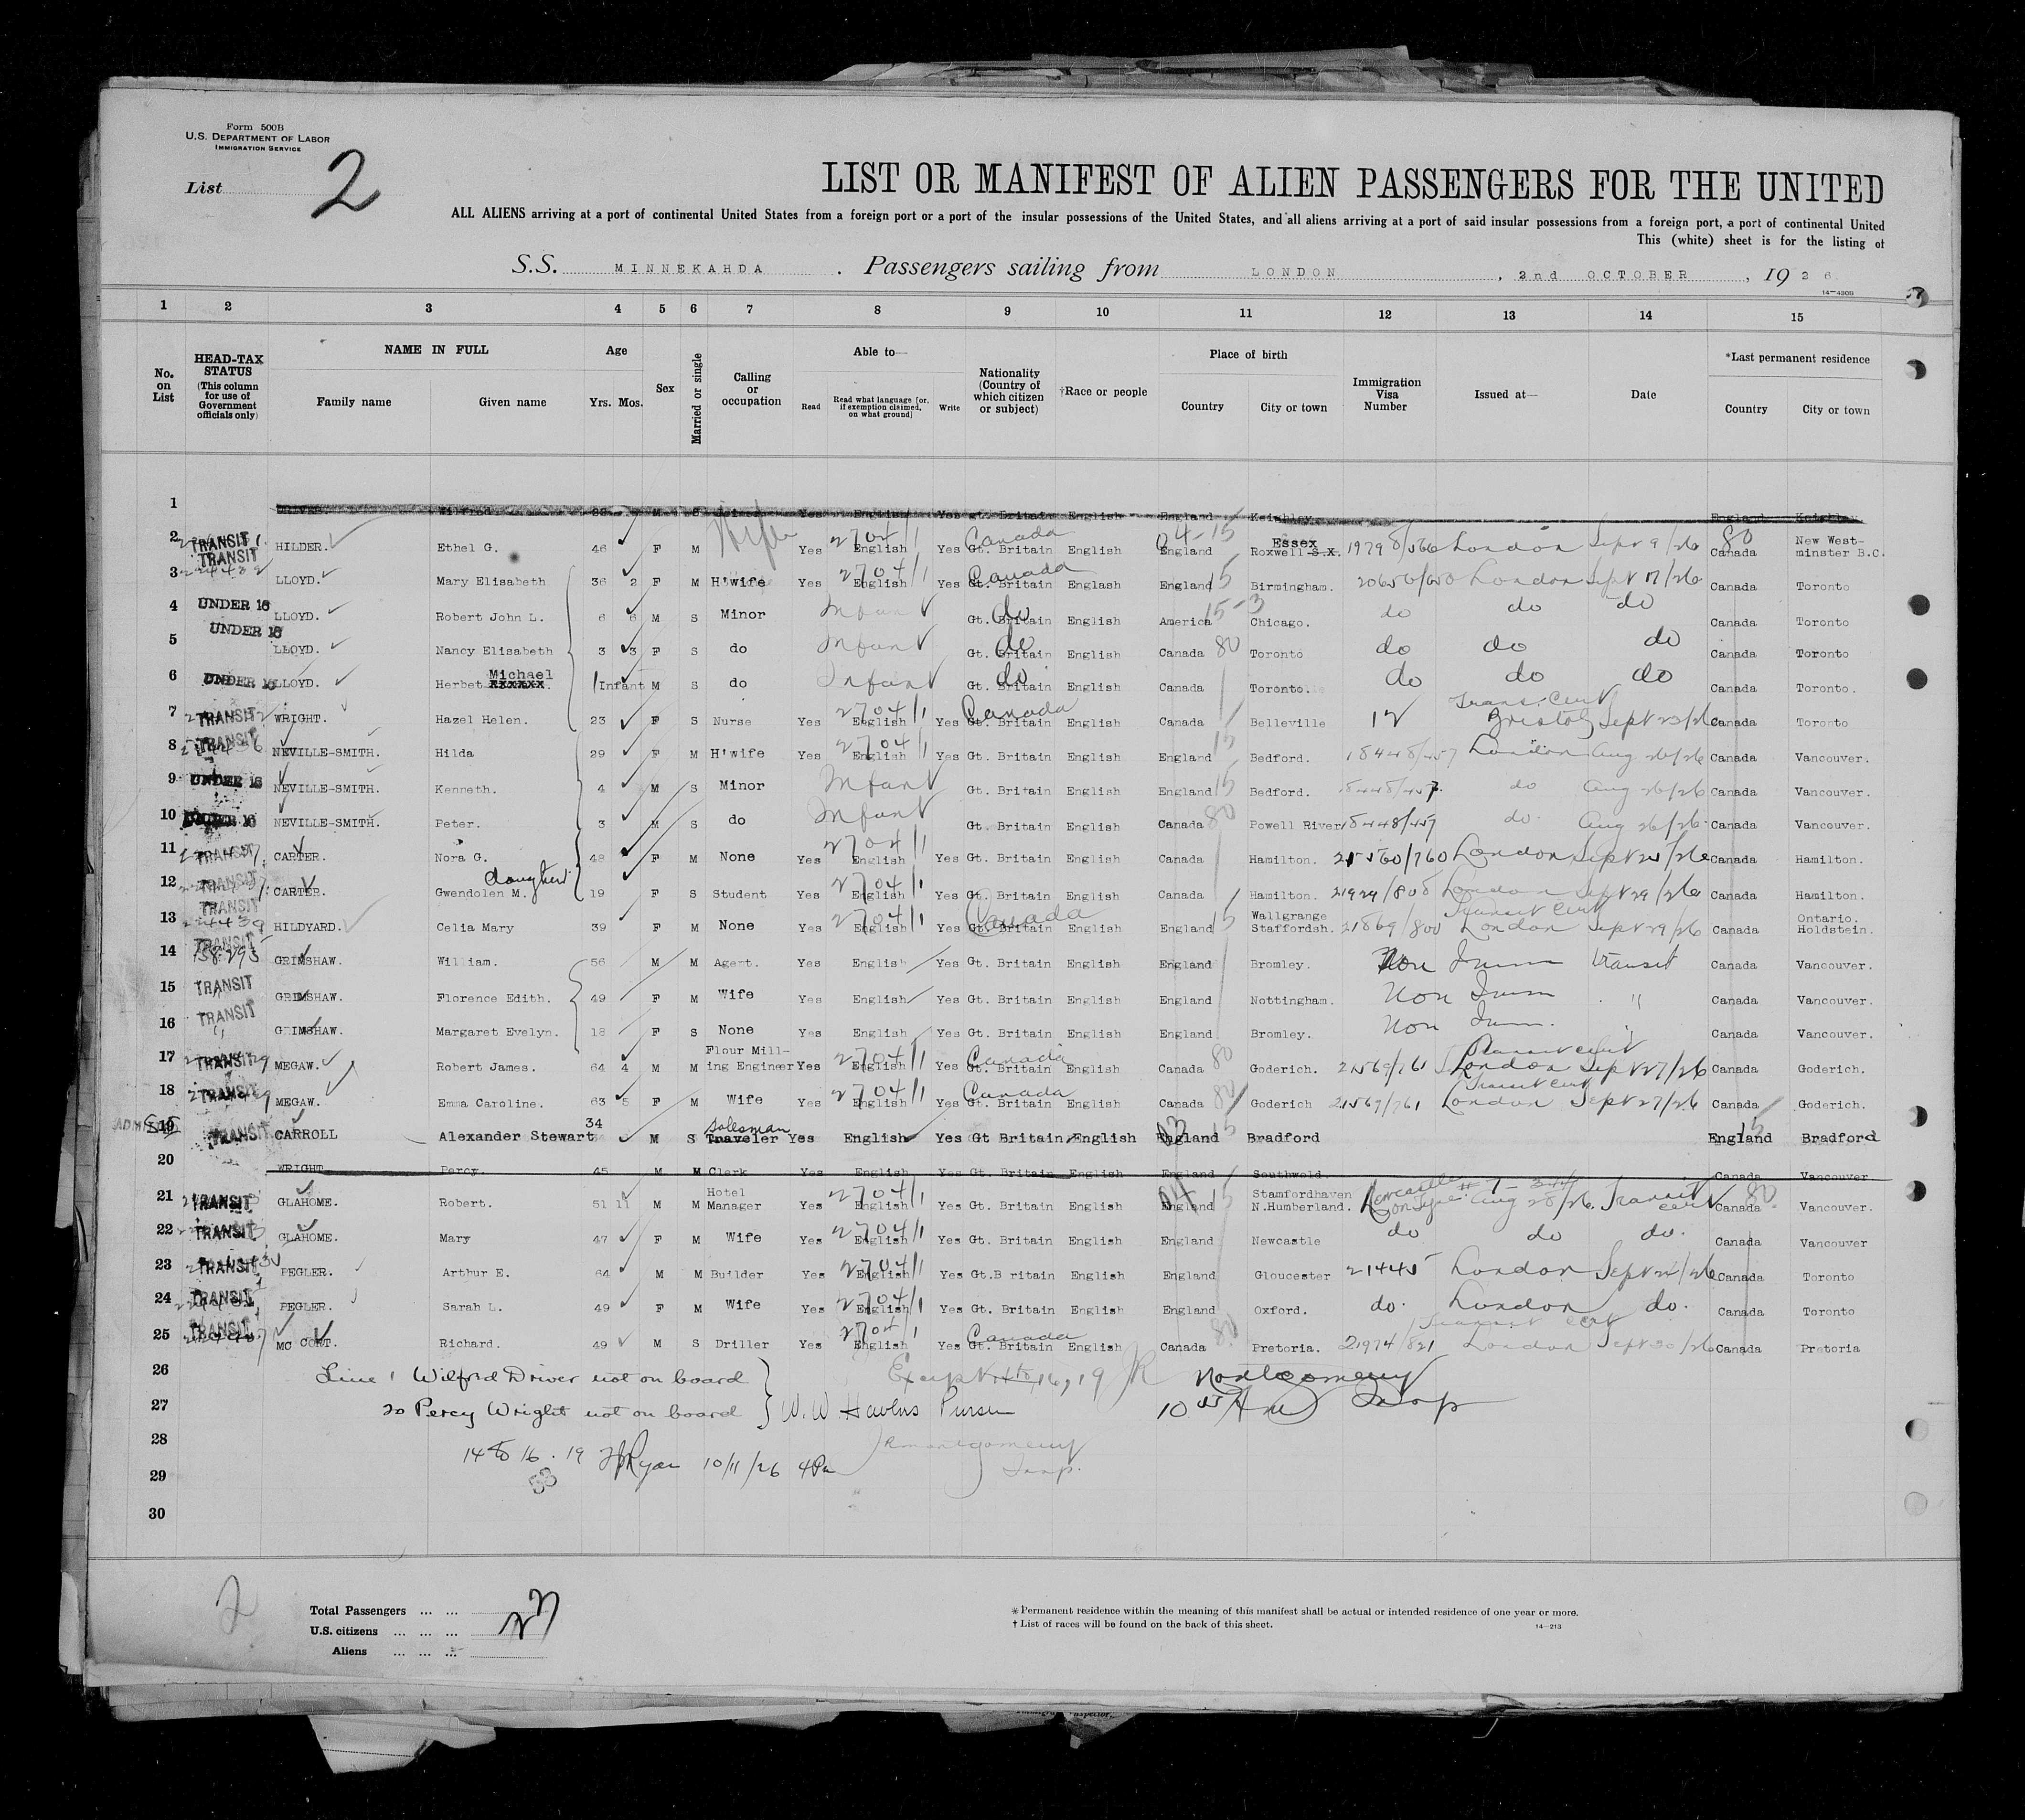 Form 500B
U.S. DEPARTMENT OF LABOR
IMMIGRATION SERVICE
List 2
LIST OR MANIFEST OF ALIEN PASSENGERS FOR THE UNITED
ALL ALIENS arriving at a port of continental United States from a foreign port or a port of the insular possessions of the United States, and all aliens arriving at a port of said insular possessions from a foreign port, a port of continental United
This (white) sheet is for the listing of
S.S. MINNEKAHDA . Passengers sailing from LONDON , 2nd OCTOBER , 19 26
14-430B
1 2 3 4 5 6 7 8 9 10 11 12 13 14 15
No. on List
HEAD-TAX STATUS (This column for use of Government officials only)
NAME IN FULL Family name Given name
Age Yrs. Mos.
Sex
Married or single
Calling or occupation
Able to— Read Read what language [or, if exemption claimed, on what ground] Write
Nationality (Country of which citizen or subject)
†Race or people
Place of birth Country City or town
Immigration Visa Number
Issued at—
Date
*Last permanent residence Country City or town
1 Wilfred M S Yes English Yes Gt. Britain English England Keighley England Keighley
2 TRANSIT TRANSIT HILDER. Ethel G. 46 F M Wife Yes 2704/1 English Yes Canada Gt. Britain English 04-15 England Essex Roxwell S.X. London Sept 9/26 80 Canada New West-minster B.C.
3 LLOYD. Mary Elisabeth 36 2 F M H'wife Yes 2704/1 English Yes Canada Gt. Britain Englash England 15 Birmingham. London Sept 17/26 Canada Toronto
4 UNDER 16 LLOYD. Robert John L. 6 6 M S Minor Infant do Gt. Britain English 15-3 America Chicago. do do do Canada Toronto
5 UNDER 16 LLOYD. Nancy Elisabeth 3 3 F S do Infant do Gt. Britain English Canada 80 Toronto do do do Canada Toronto
6 UNDER 16 LLOYD. Herbet Michael xxxxxx. 1 Infant M S do Infant do Gt. Britain English Canada Toronto. do do do Canada Toronto.
7 TRANSIT WRIGHT. Hazel Helen. 23 F S Nurse Yes 2704/1 English Yes Canada Gt. Britain English Canada Belleville 12 Trans. Cert Bristol Sept 23/26 Canada Toronto
8 TRANSIT NEVILLE-SMITH. Hilda 29 F M H'wife Yes 2704/1 English Yes Gt. Britain English England 15 Bedford. 18448/457 London Aug 26/26 Canada Vancouver.
9 UNDER 16 NEVILLE-SMITH. Kenneth. 4 M S Minor Infant Gt. Britain English England 15 Bedford. 18448/457 do Aug 26/26 Canada Vancouver.
10 UNDER 16 NEVILLE-SMITH. Peter. 3 M S do Infant Gt. Britain English Canada 80 Powell River 18448/457 do. Aug 26/26. Canada Vancouver.
11 TRANSIT CARTER. Nora G. 48 F M None Yes 2704/1 English Yes Gt. Britain English Canada Hamilton. London Canada Hamilton.
12 TRANSIT CARTER. Gwendolen M. daughter 19 F S Student Yes 2704/1 English Yes Gt. Britain English Canada Hamilton. London Sept 29/26 Canada Hamilton.
13 TRANSIT 224439 HILDYARD. Celia Mary 39 F M None Yes 2704/1 English Yes Canada Gt. Britain English England 15 Wallgrange Staffordsh. 21869/800 Transit Cert London Sept 29/26 Canada Ontario. Holdstein.
14 TRANSIT GRIMSHAW. William. 56 M M Agent. Yes English Yes Gt. Britain English England Bromley. Non Imm transit Canada Vancouver.
15 TRANSIT GRIMSHAW. Florence Edith. 49 F M Wife Yes English Yes Gt. Britain English England Nottingham. Non Imm " Canada Vancouver.
16 TRANSIT " GRIMSHAW. Margaret Evelyn. 18 F S None Yes English Yes Gt. Britain English England Bromley. Non Imm. " Canada Vancouver.
17 TRANSIT MEGAW. Robert James. 64 4 M M Flour Mill-ing Engineer Yes 2704/1 English Yes Canada Gt. Britain English Canada 80 Goderich. 21569/761 Transit Cert London Sept 27/26 Canada Goderich.
18 TRANSIT MEGAW. Emma Caroline. 63 5 F M Wife Yes 2704/1 English Yes Canada Gt. Britain English Canada 80 Goderich 21569/761 Transit Cert London Sept 27/26 Canada Goderich.
19 ADMITTED TRANSIT CARROLL Alexander Stewart 34 M S Salesman Traveler Yes English Yes Gt Britain English England 15 Bradford England 15 Bradford
20 WRIGHT Percy. 45 M M Clerk Yes English Yes Gt. Britain English England Southwold. Canada Vancouver
21 TRANSIT GLAHOME. Robert. 51 11 M M Hotel Manager Yes 2704/1 English Yes Gt. Britain English 04 15 England Stamfordhaven N.Humberland. Newcastle on Tyne. Aug 28/26. Transit cert 80 Canada Vancouver.
22 TRANSIT GLAHOME. Mary 47 F M Wife Yes 2704/1 English Yes Gt. Britain English England Newcastle do do do. Canada Vancouver
23 TRANSIT PEGLER. Arthur E. 64 M M Builder Yes 2704/1 English Yes Gt.B ritain English England Gloucester 21445 London Canada Toronto
24 TRANSIT PEGLER. Sarah L. 49 F M Wife Yes 2704/1 English Yes Gt. Britain English England Oxford. do. London do. Canada Toronto
25 TRANSIT MC CORT. Richard. 49 M S Driller Yes 2704/1 English Yes Canada Gt. Britain English Canada 80 Pretoria. 21974/821 Transit Cert London Sept 30/26 Canada Pretoria
26 Line 1 Wilfred Driver not on board Except 14 to 16, 19 JR Montgomery
27 20 Percy Wright not on board } W. W Havens Purser Insp
28 14 to 16 . 19 Ryan 10/11/26 4 Pm RMontgomery
29 53 Insp.
30
2
Total Passengers ... ... 23
U.S. citizens ... ... ...
Aliens ... ... ...
* Permanent residence within the meaning of this manifest shall be actual or intended residence of one year or more.
† List of races will be found on the back of this sheet.
14-213